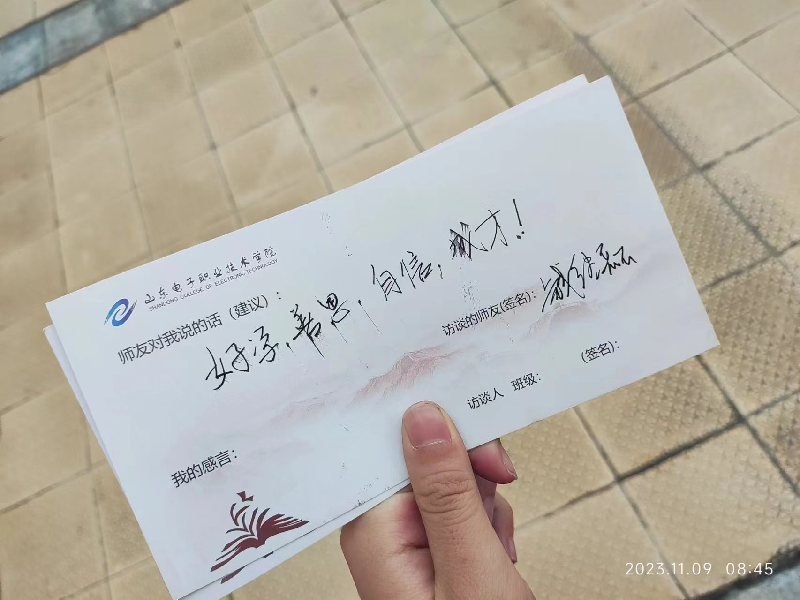 山东电子职业技术学院
SHANDONG COLLEGE OF ELECTRONIC TECHNOLOGY
师友对我说的话（建议）：
好学，善思，自信，成才！
访谈的师友(签名)：
访谈人 班级： (签名)：
我的感言：
2023.11.09 08:45